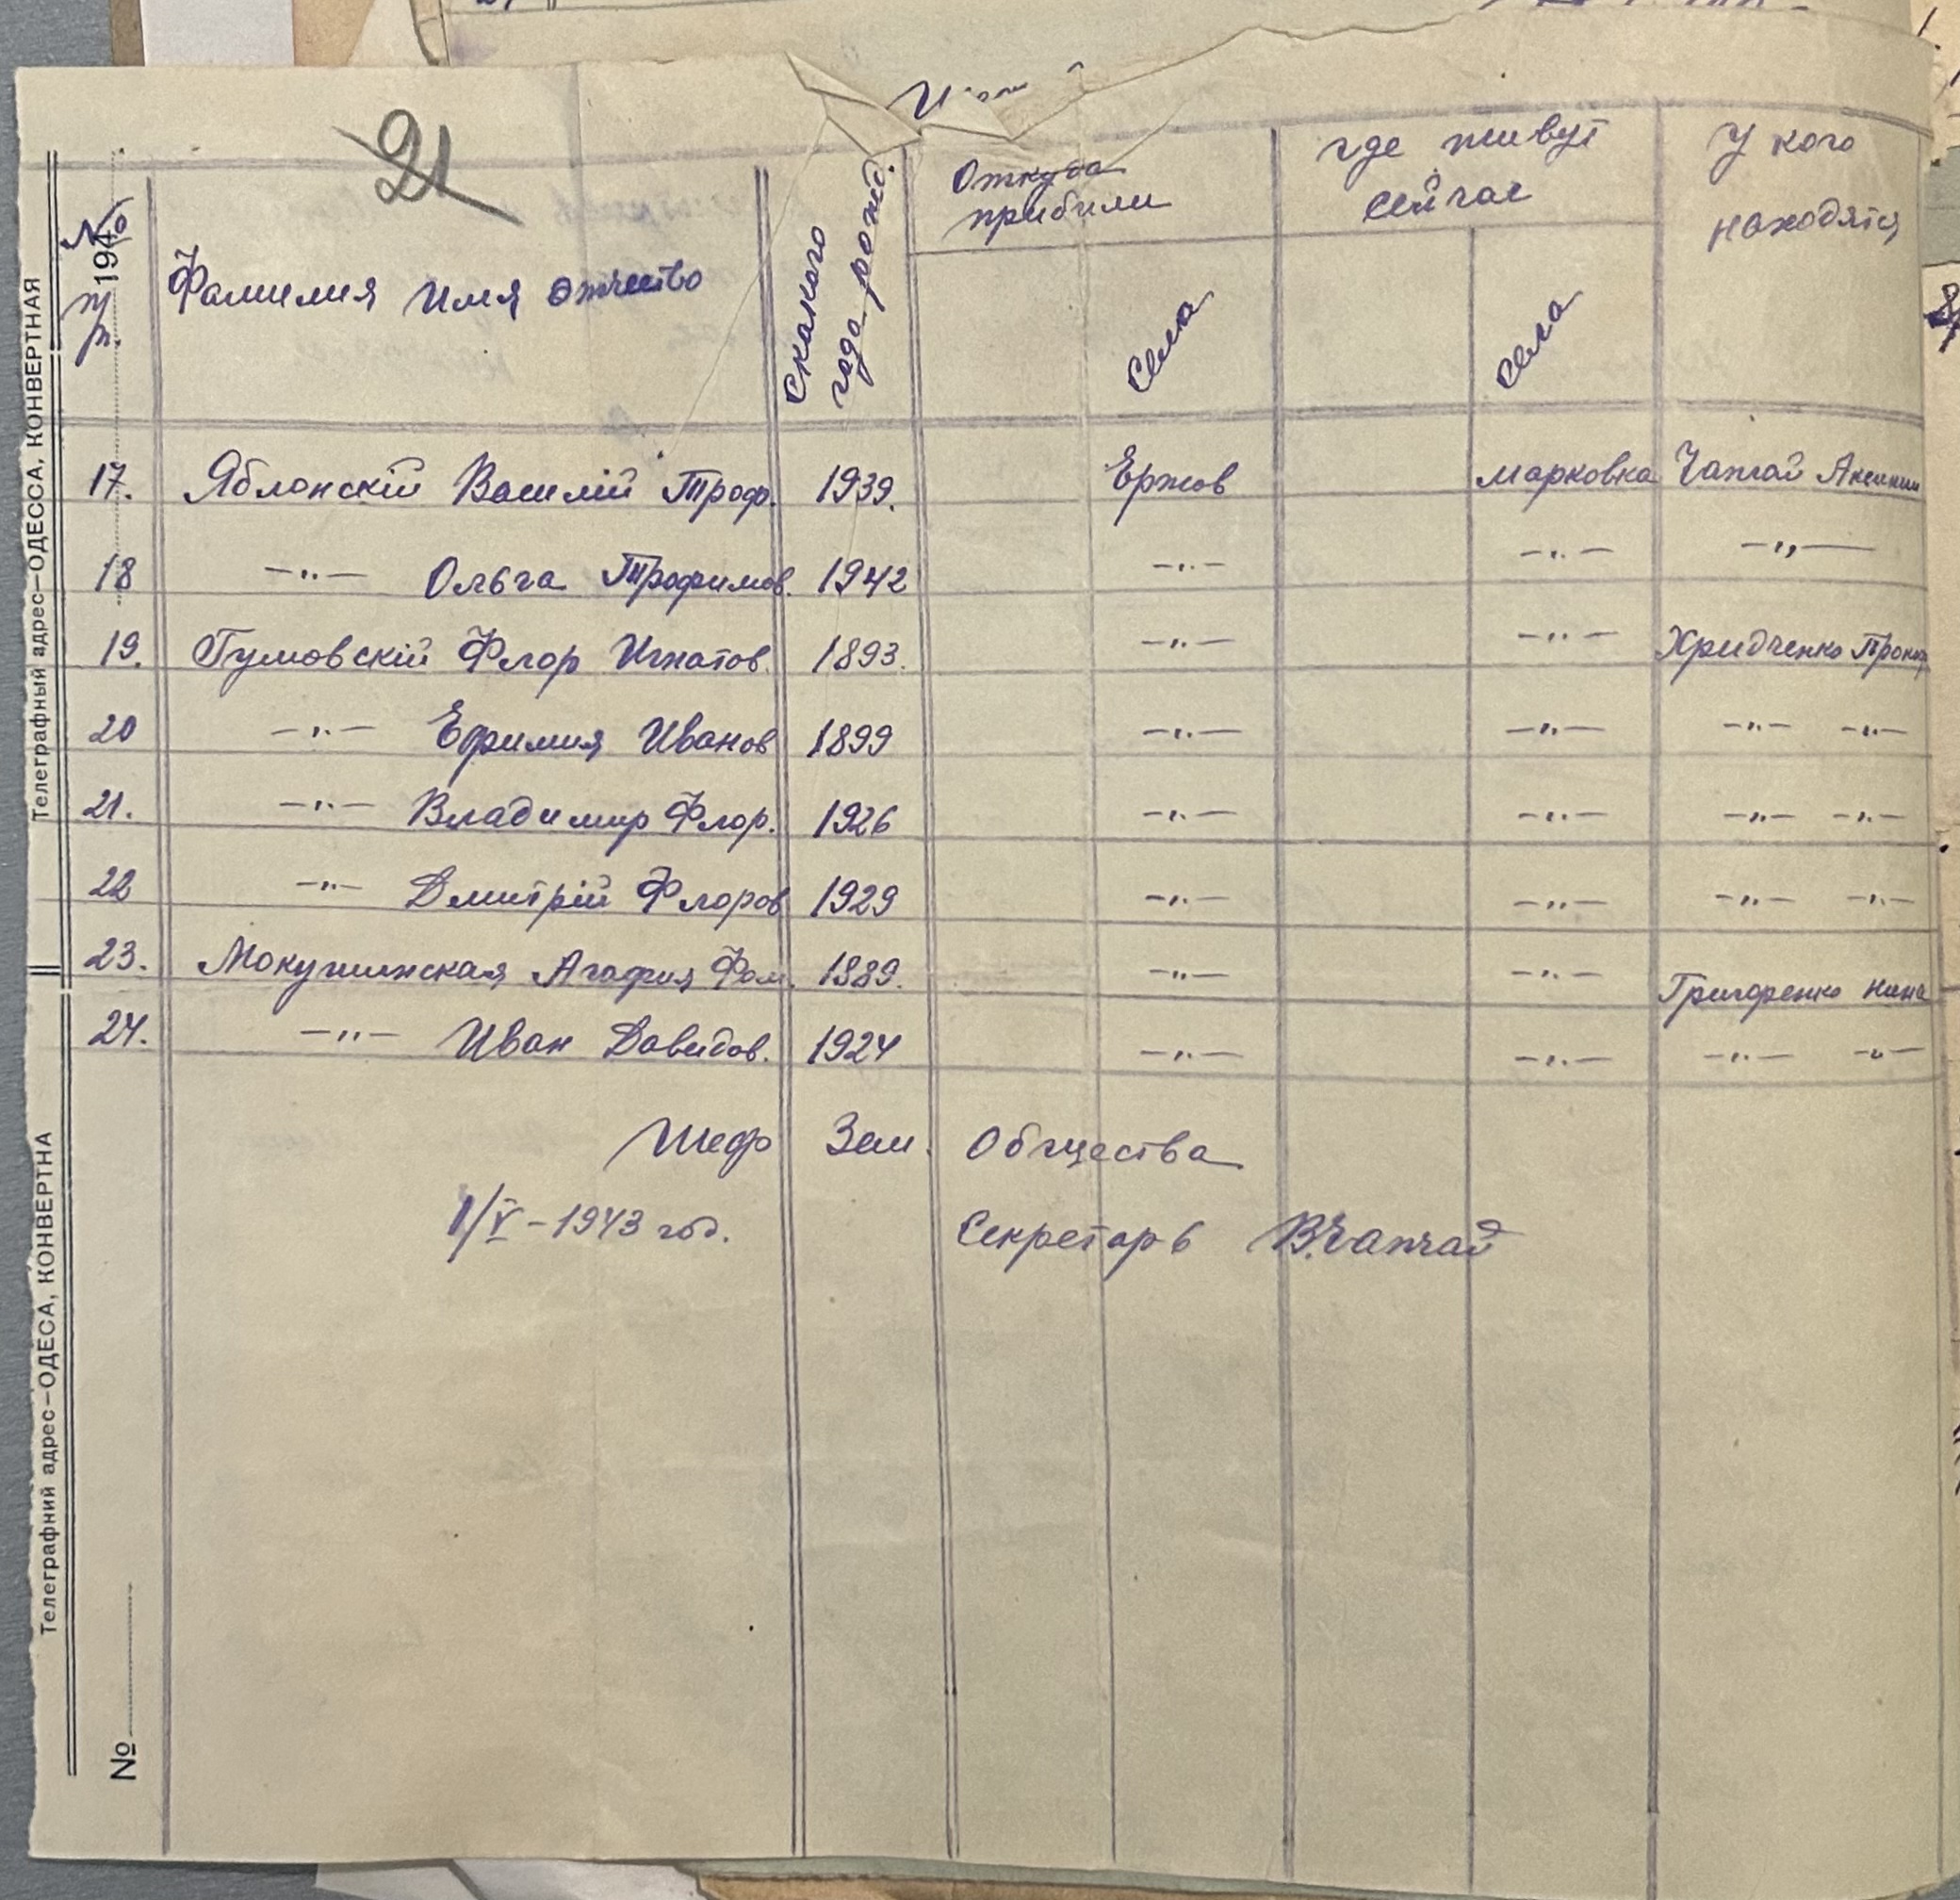 21
№ п/п.
Фамилия Имя отчество
Скакого года рожд.
Откуда прибыли
где живут сейчас
У кого находятся
Села
Села
17. Яблонскій Василій Троф. 1939. Ержов Марковка Чапчай
18 —„— Ольга Трофимов. 1942 —„— —„— —„—
19. Гумовскій Флор Игнатов. 1893. —„— —„— Хридченко
20 —„— Ефимия Иванов 1899 —„— —„— —„— —„—
21. —„— Владимир Флор. 1926 —„— —„— —„— —„—
22 —„— Дмитрій Флоров 1929 —„— —„— —„— —„—
23. Мокушинская Агафия Фом. 1889. —„— —„— Григоренко Нина
24. —„— Иван Давидов. 1924 —„— —„— —„— —„—
Шеф Зем. Общества
1/V – 1943 год. Секретарь В.Чапчай
Телеграфный адрес—ОДЕССА, КОНВЕРТНАЯ
Телеграфний адрес—ОДЕСА, КОНВЕРТНА
194
№